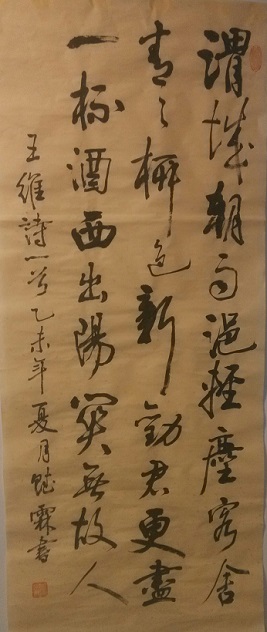 渭城朝雨浥輕塵客舍
青々柳色新勸君更盡
一杯酒西出陽關無故人
王維詩一首乙未年夏月懿霖書